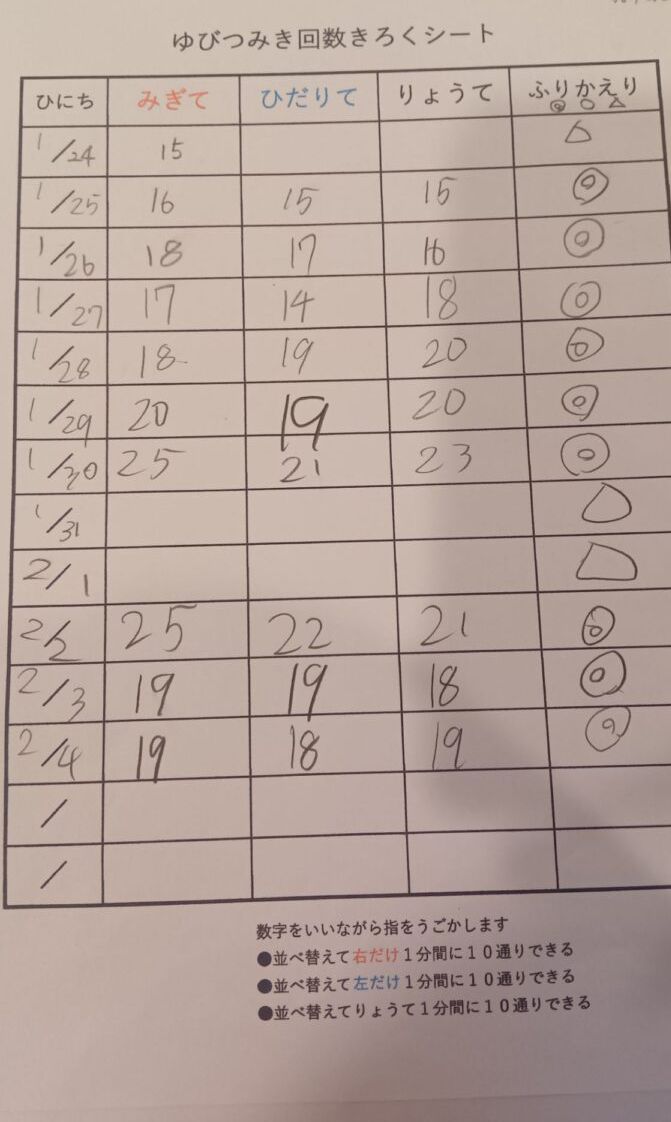 ゆびつみき回数きろくシート
ひにち みぎて ひだりて りょうて ふりかえり
◎ ○ △
1/24 15 △
1/25 16 15 15 ◎
1/26 18 17 16 ◎
1/27 17 14 18 ◎
1/28 18 19 20 ◎
1/29 20 19 20 ◎
1/30 25 21 23 ◎
1/31 △
2/1 △
2/2 25 22 21 ◎
2/3 19 19 18 ◎
2/4 19 18 19 ◎
/
/
数字をいいながら指をうごかします
●並べ替えて右だけ1分間に10通りできる
●並べ替えて左だけ1分間に10通りできる
●並べ替えてりょうて1分間に10通りできる